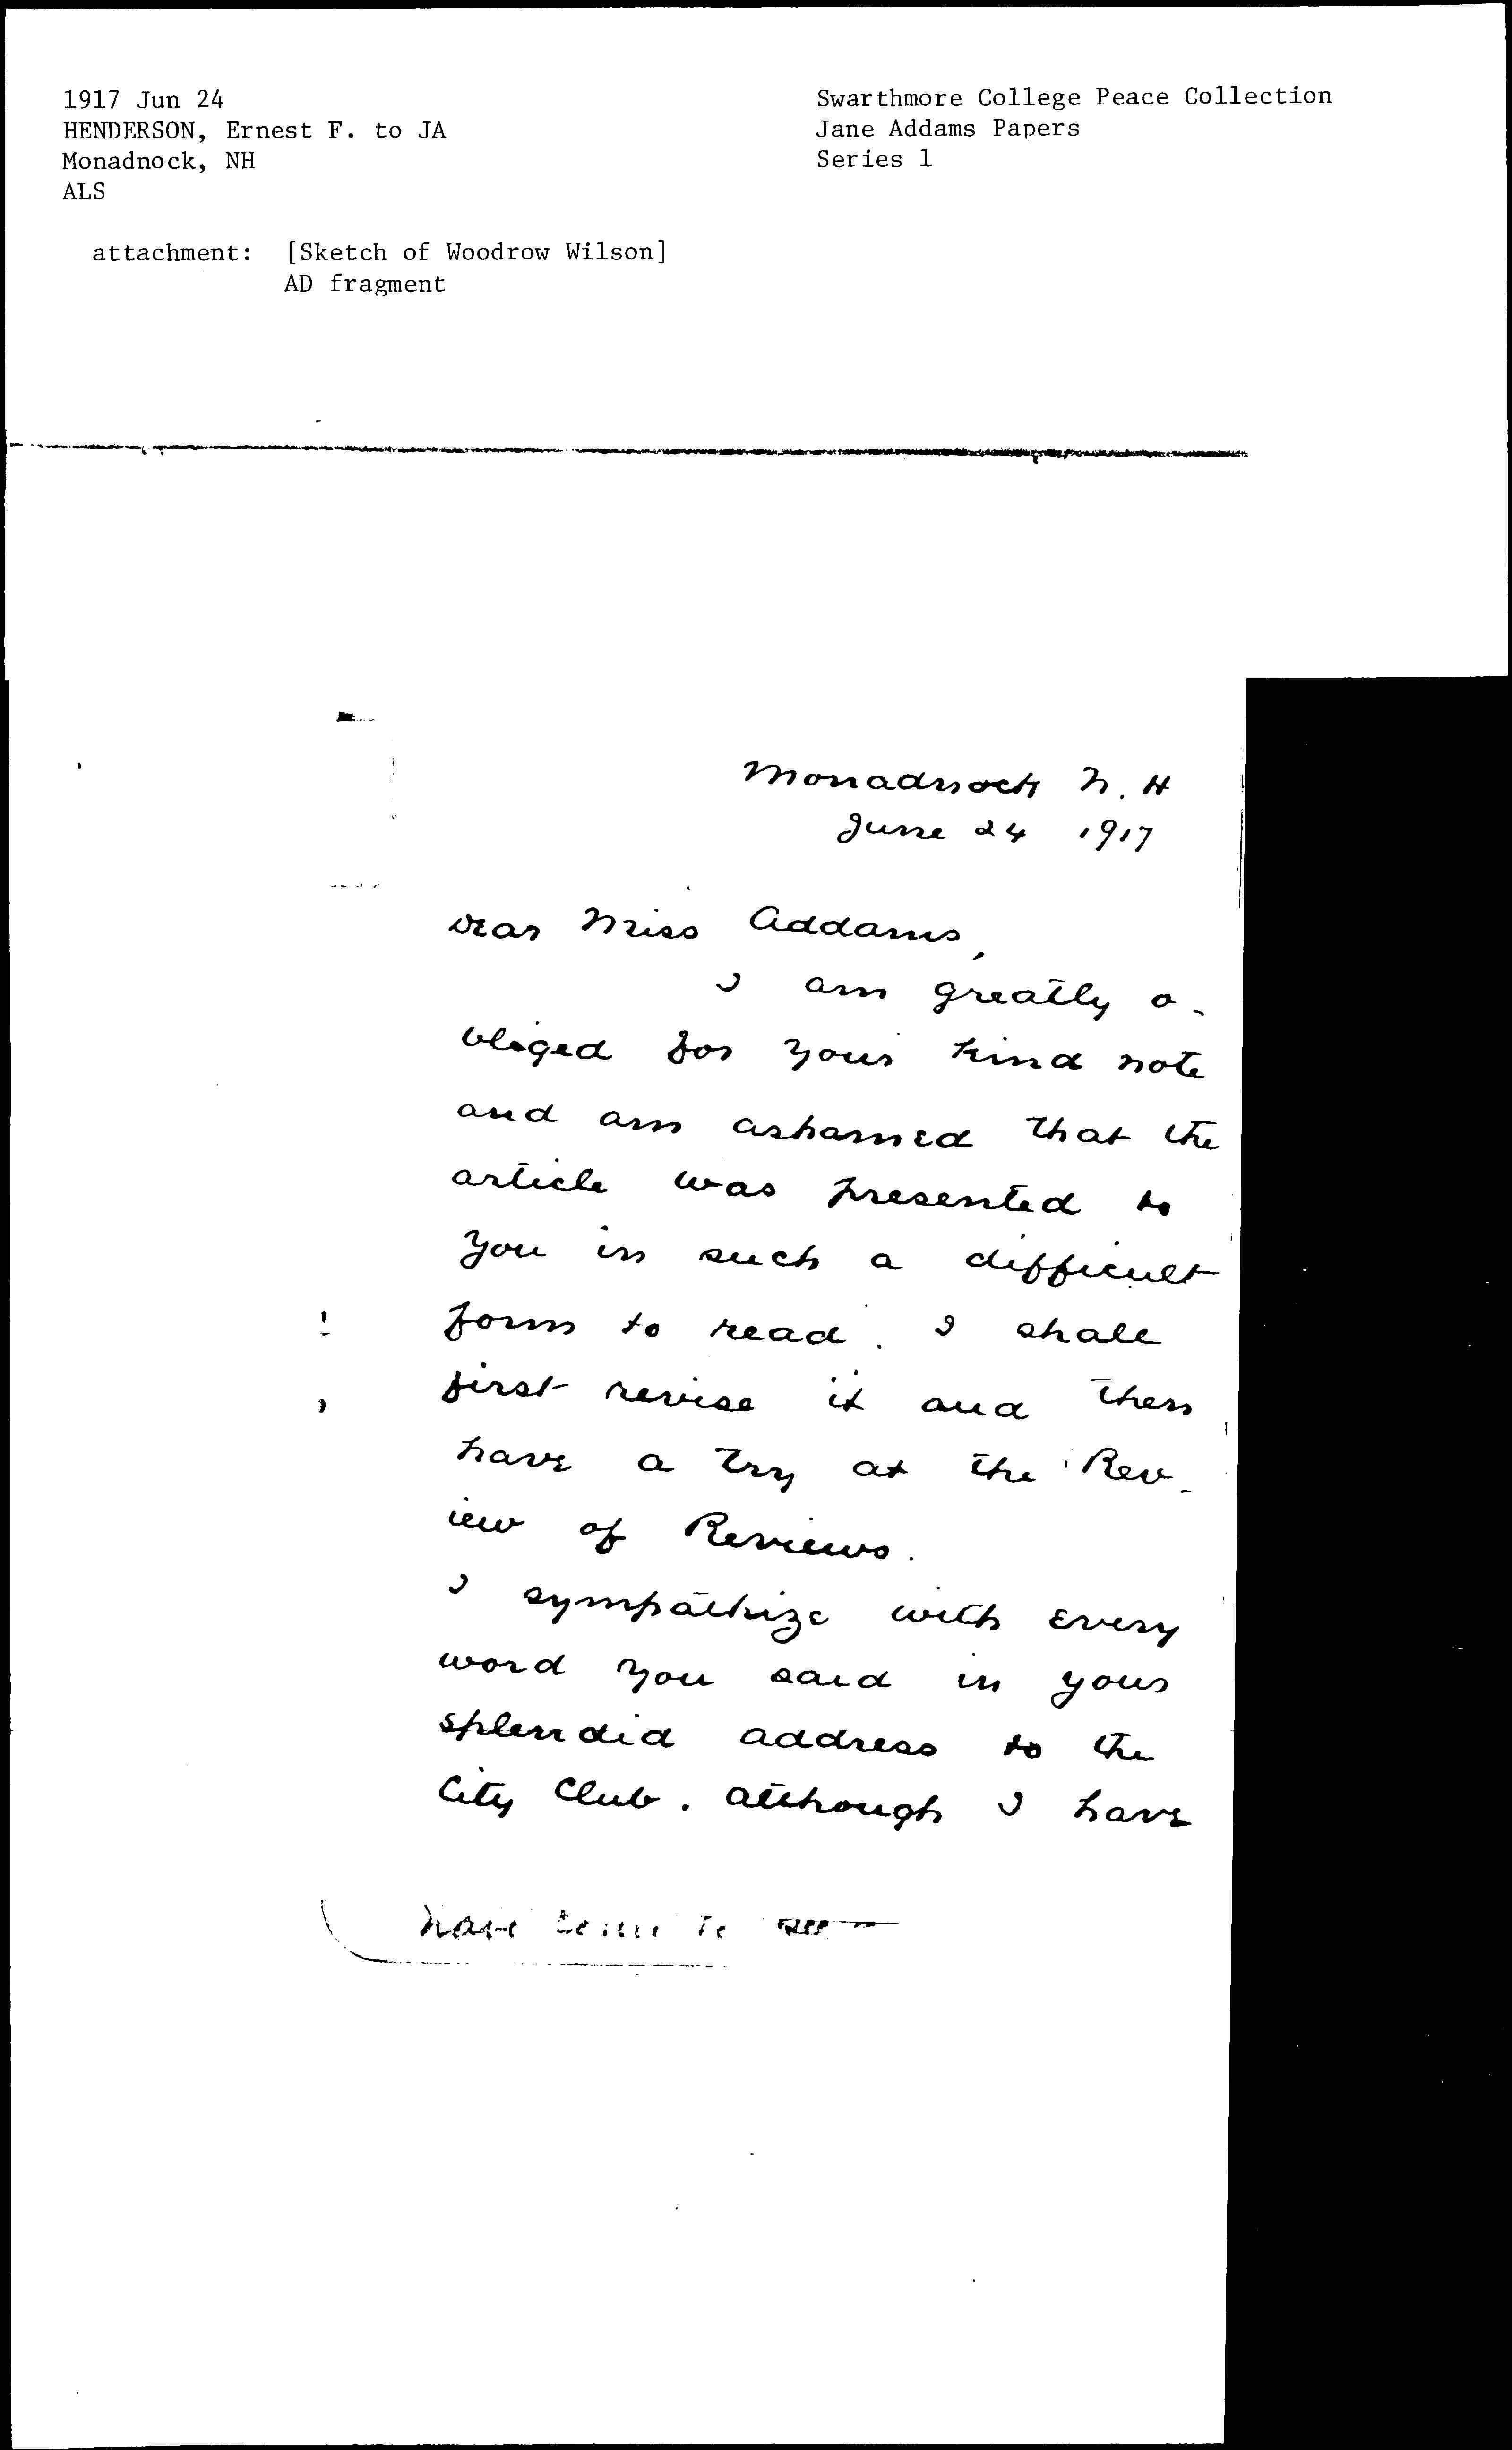 1917 Jun 24
HENDERSON, Ernest F. to JA
Monadnock, NH
ALS
attachment: [Sketch of Woodrow Wilson]
AD fragment
Swarthmore College Peace Collection
Jane Addams Papers
Series 1
Monadnock N. H
June 24 1917
Dear Miss Addams,
I am greatly o-
bliged for your kind note
and am ashamed that the
article was presented to
you in such a difficult
form to read. I shall
first revise it and then
have a try at the Rev-
iew of Reviews.
I sympathize with every
word you said in your
splendid address to the
City Club. Although I have
have